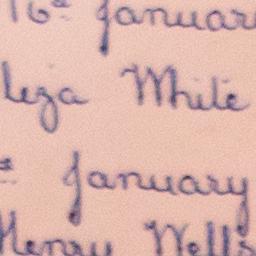 16th January
Leza White
January
Henry Wells